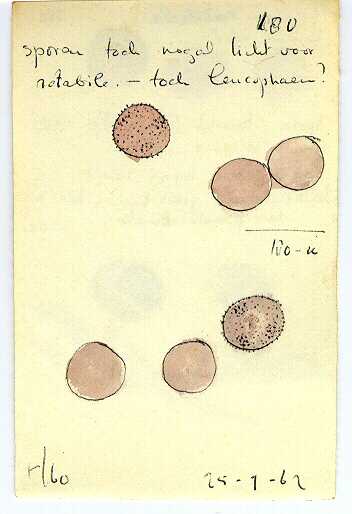 180
sporen toch nogal licht voor
notabile. – toch leucophaem?
10-µ
+/60
25-7-62